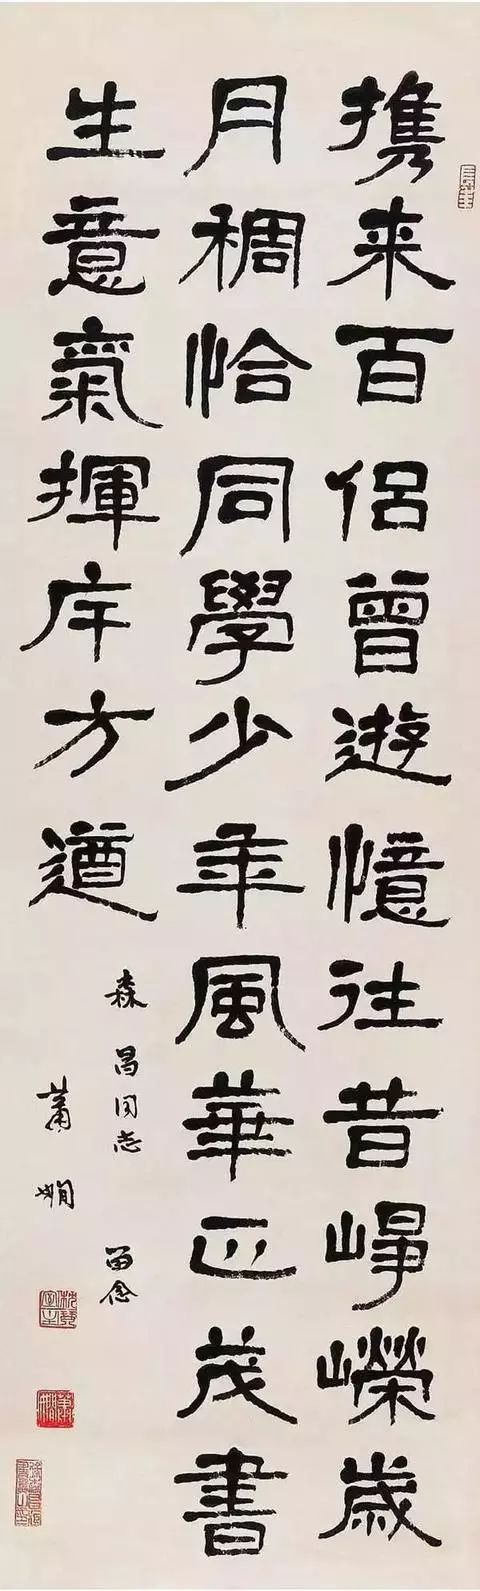 携来百侶曾遊憶往昔崢嶸歲
月稠恰同學少年風華正茂書
生意氣揮斥方遒
森昌同志 留念
蕭嫻
枕琴室
蕭嫻